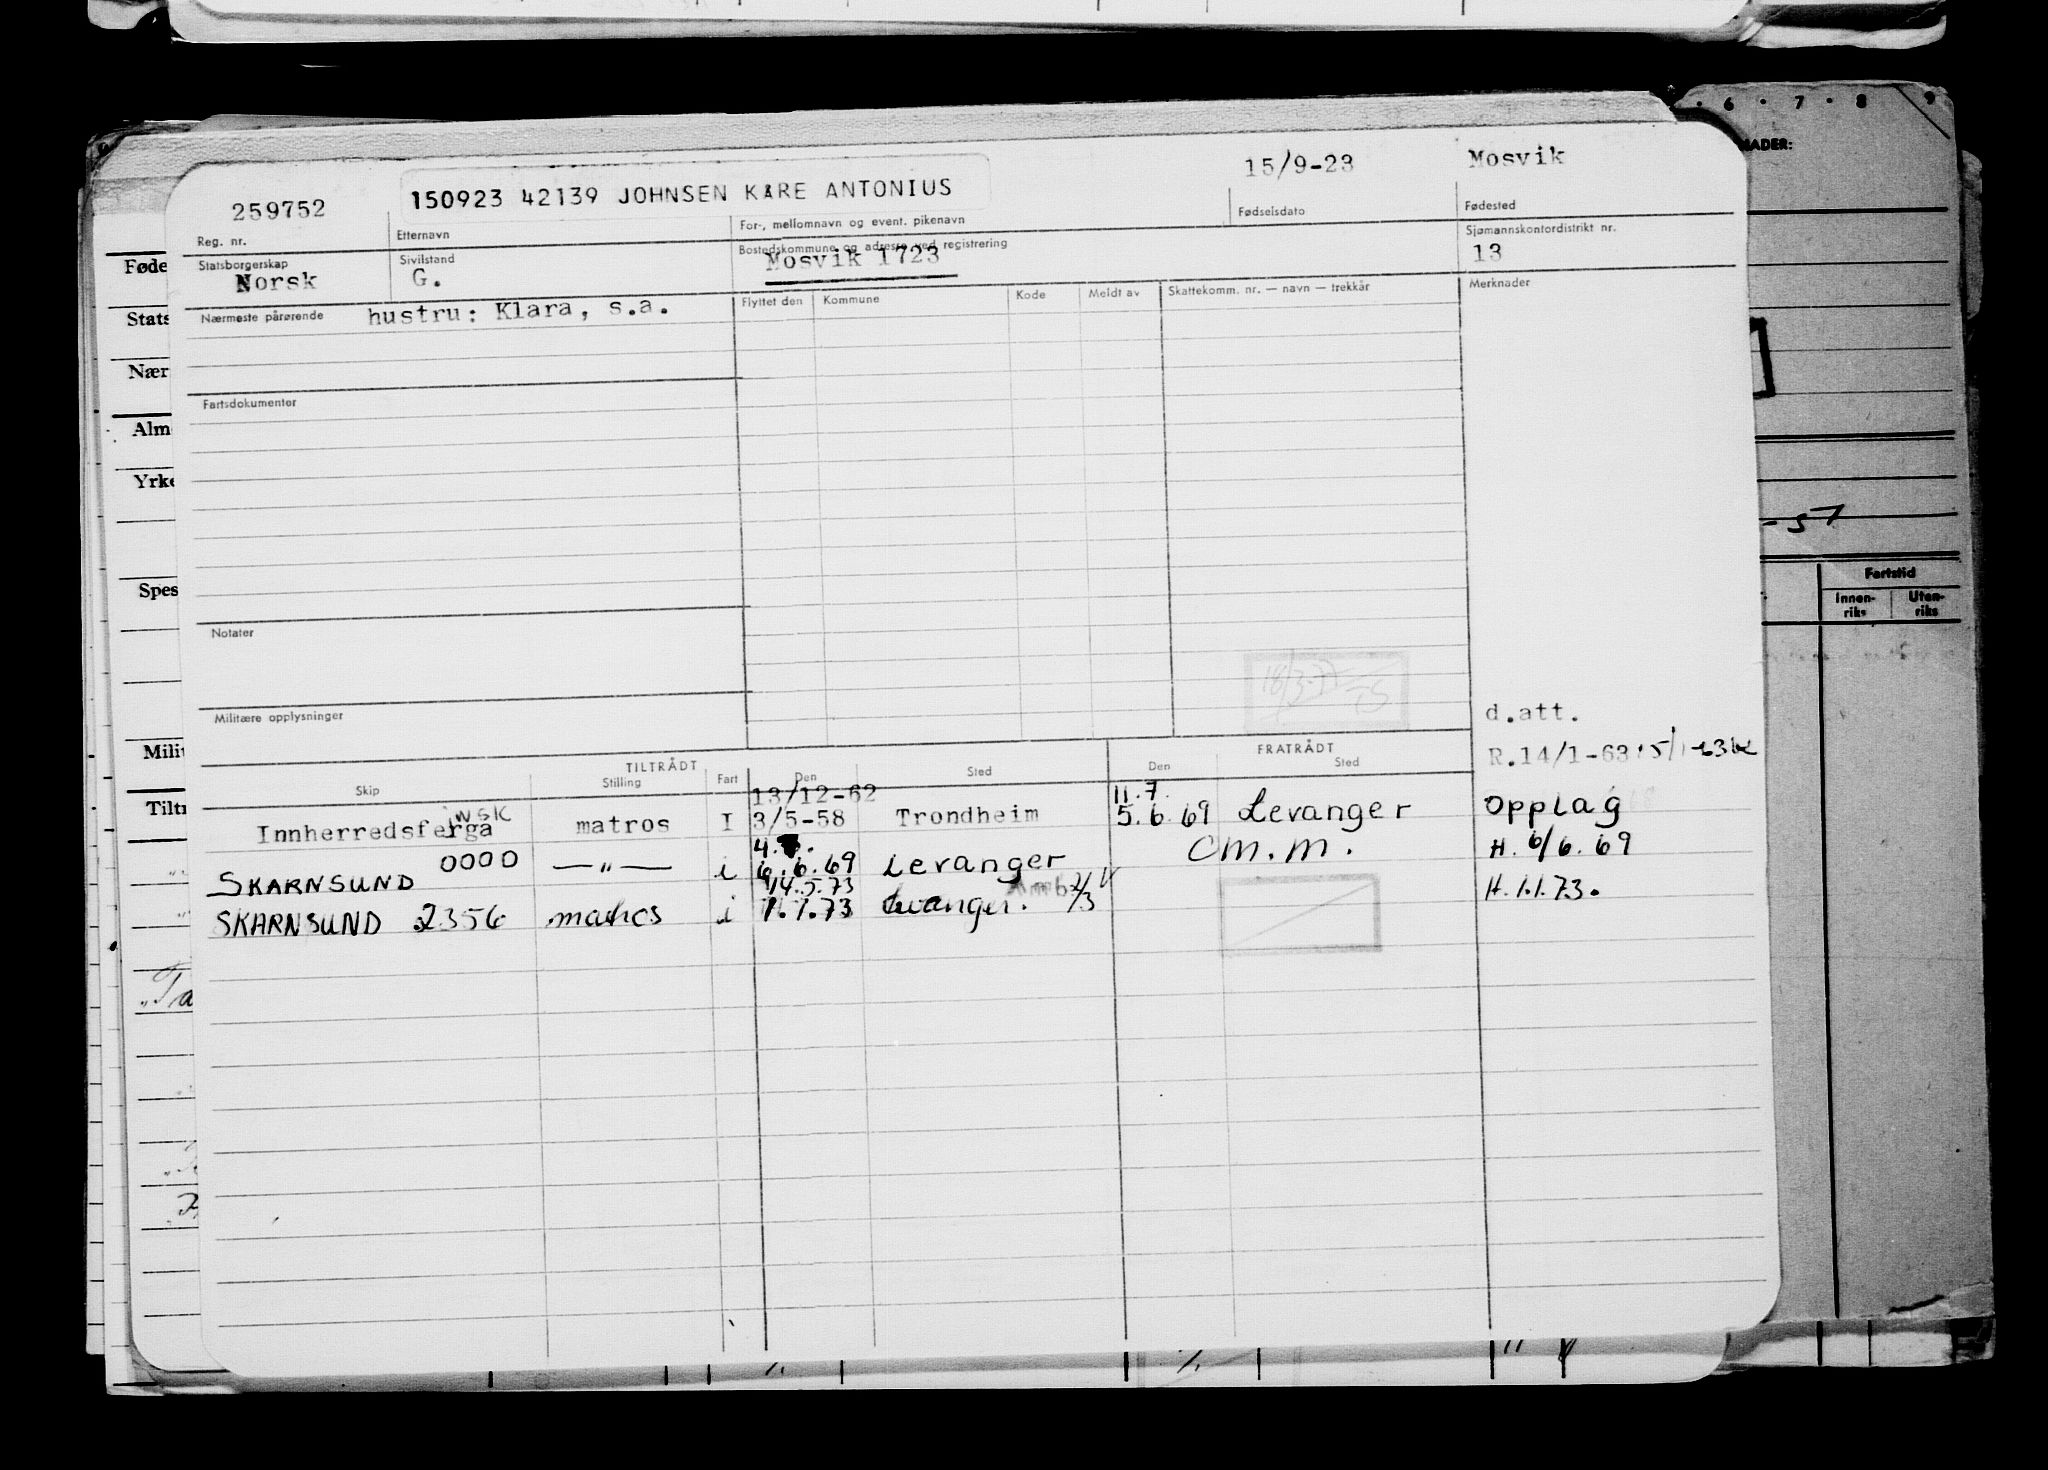 6 · 7 · 8 9
NADER:
15/9-23 Mosvik
259752 150923 42139 JOHNSEN KÅRE ANTONIUS
Reg. nr. Etternavn For-, mellomnavn og event. pikenavn Fødselsdato Fødested
Statsborgerskap Sivilstand Bostedskommune og adresse ved registrering Sjømannskontordistrikt nr.
Norsk G. Mosvik 1723 13
Nærmeste pårørende hustru: Klara, s.a. Flyttet den Kommune Kode Meldt av Skattekomm. nr. — navn — trekkår Merknader
Fartsdokumenter
Notater
Militære opplysninger
d.att.
TILTRÅDT FRATRÅDT R.14/1-63
Skip Stilling Fart Den Sted Den Sted
13/12-62 11.7.
Innherredsferga matros I 3/5-58 Trondheim 5.6.69 Levanger Opplag
SKARNSUND 0000 —"— i 6.6.69 Levanger M.M. H. 6/6.69
14.5.73
SKARNSUND 2356 matros i 1.1.73 Levanger. 2/3 H.1.1.73.
Føde
Stats
Nær
Alm
Yrke
Spes
Milit
Tiltr
-57
Fartstid
Innen-riks Uten-riks